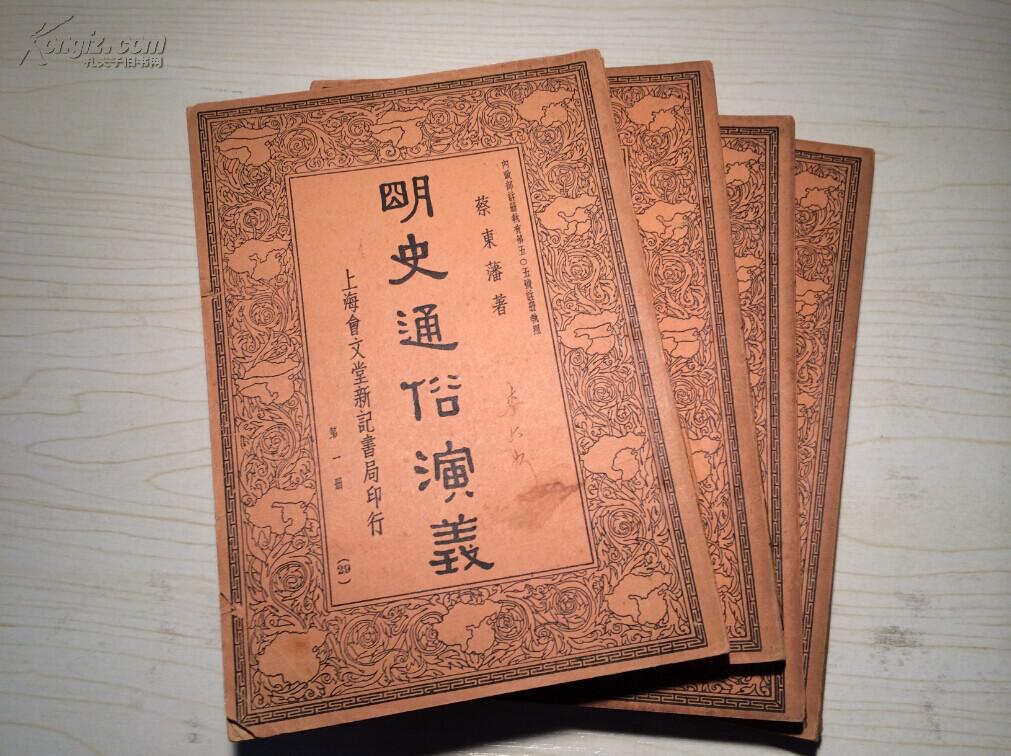 Kongfz.com
孔夫子旧书网
內政部註冊執有第五〇五號註冊執照
蔡東藩著
明史通俗演義
上海會文堂新記書局印行
第一册
(29)